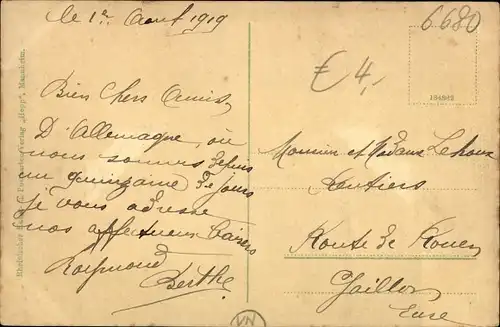 le 1er Aout 1919
Bien Chers Amis,
D'Allemagne, où
nous sommes depuis
un quinzaine de jours
je vous adresse
nos affectueux baisers
Raymond
Berthe
6680
€ 4,-
194942
Monsieur et Madame Lehoux
Rentiers
Route de Rouen
Gaillon
Eure
Verlag „Hepp", Mannheim.
VN